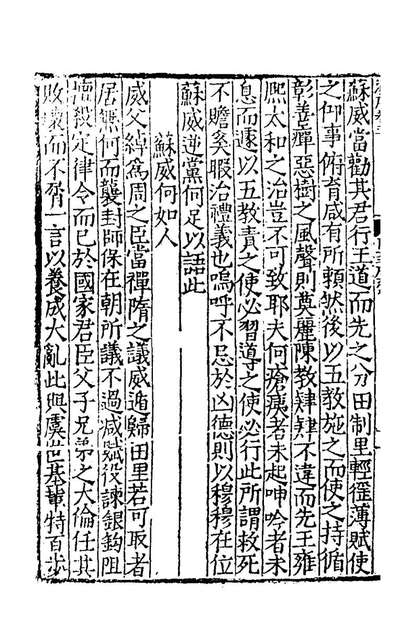 蘇威當勸其君行王道而先之分田制里輕徭薄賦使
之仰事俯育咸有所賴然後以五教施之而使之持循
彰善癉惡樹之風聲則奠麗陳教肄肄不違而先王雍
熈太和之治豈不可致耶夫何瘡痍者未起呻吟者未
息而遽以五教責之使必習導之使必行此所謂救死
不贍奚暇治禮義也嗚呼不忌於凶德則以穆穆在位
蘇威逆黨何足以語此
蘇威何如人
威父綽爲周之臣當禪隋之議威遁歸田里若可取者
居無何而襲封師保在朝所議不過减賦役諫銀鈎阻
憤殺定律令而已於國家君臣父子兄弟之大倫任其
敗壞而不聞一言以養成大亂此與虞世基輩特百步